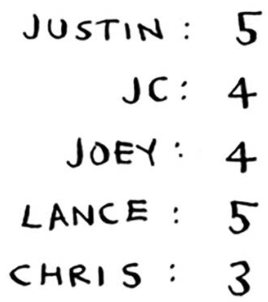 JUSTIN: 5
JC: 4
JOEY: 4
LANCE: 5
CHRIS: 3